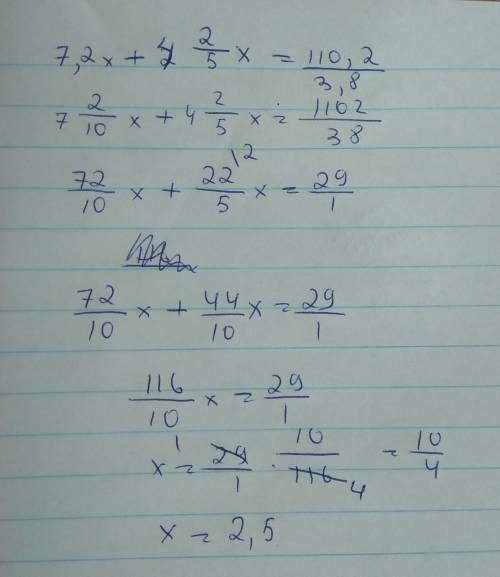 7,2x + 4 2/5 x = 110,2/3,8
7 2/10 x + 4 2/5 x = 1102/38
72/10 x + 22\2/5 x = 29/1
72/10 x + 44/10 x = 29/1
116/10 x = 29/1
x = 29 1/1 · 10/116 4 = 10/4
x = 2,5